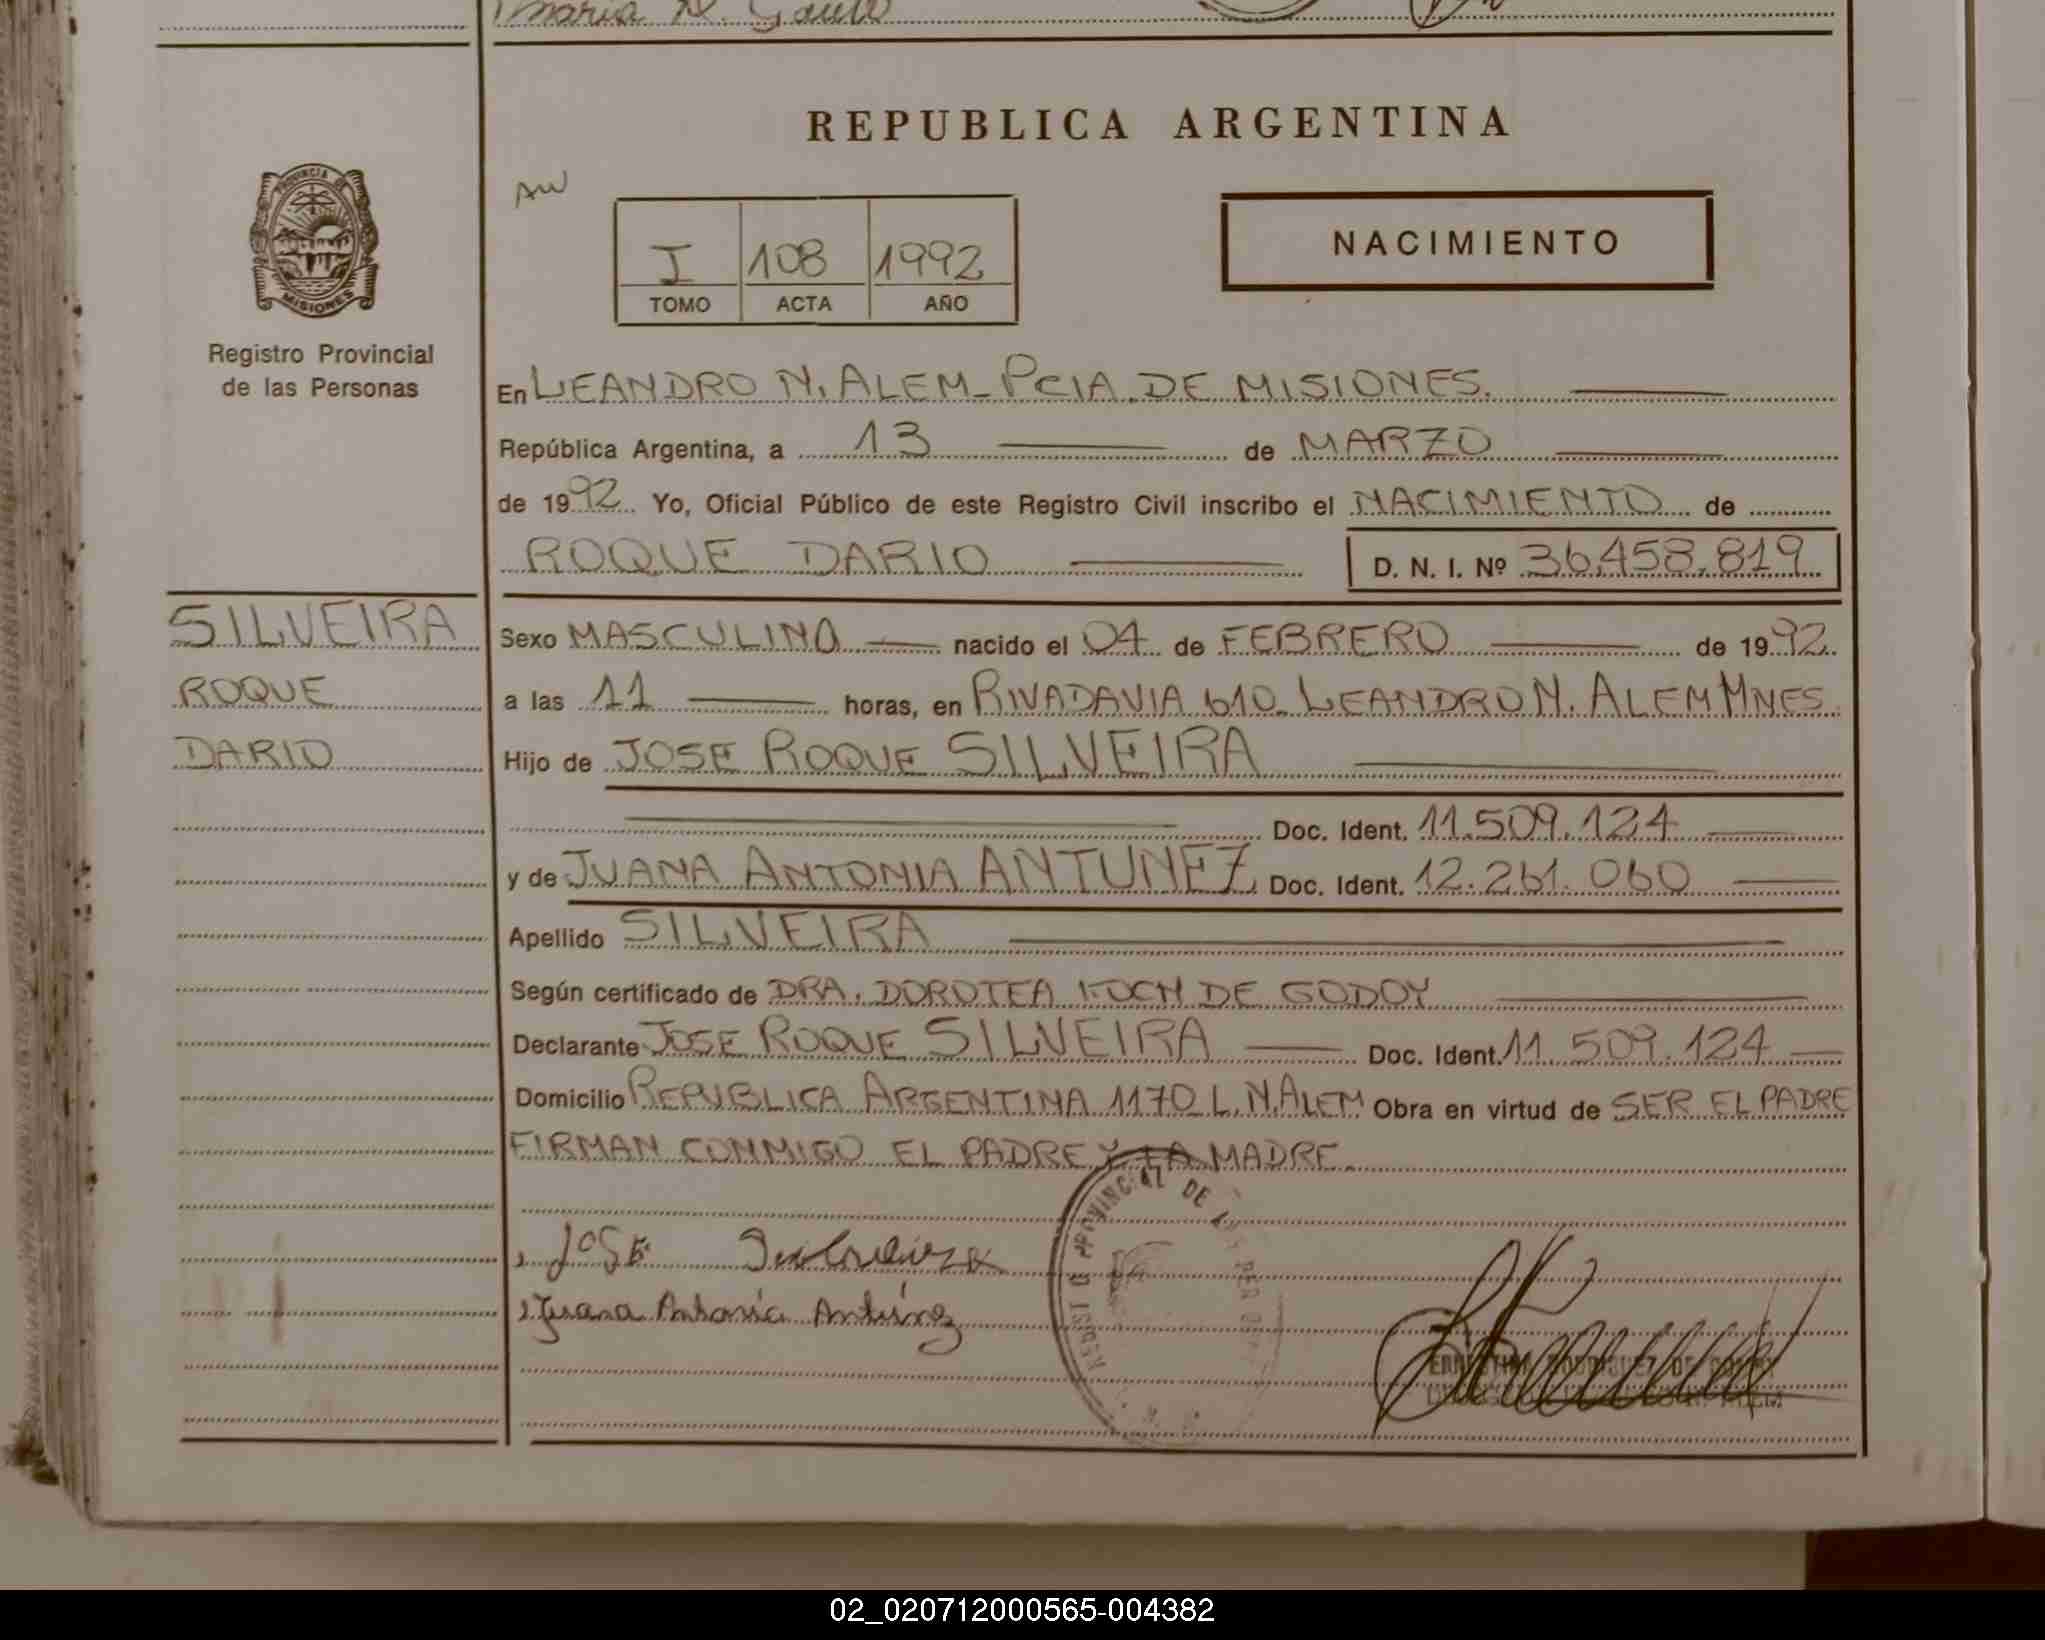 Maria
REPUBLICA ARGENTINA
AW
PROVINCIA DE
MISIONES
I 108 1992
TOMO ACTA AÑO
NACIMIENTO
Registro Provincial
de las Personas
En LEANDRO N. ALEM - PCIA. DE MISIONES.
República Argentina, a 13 de MARZO
de 1992 Yo, Oficial Público de este Registro Civil inscribo el NACIMIENTO de
ROQUE DARIO D. N. I. Nº 36.458.819
SILVEIRA
ROQUE
DARIO
Sexo MASCULINO nacido el 04 de FEBRERO de 1992
a las 11 horas, en RIVADAVIA 610 - LEANDRO N. ALEM MNES.
Hijo de JOSE ROQUE SILVEIRA
Doc. Ident. 11.509.124
y de JUANA ANTONIA ANTUNEZ Doc. Ident. 12.261.060
Apellido SILVEIRA
Según certificado de DRA. DOROTEA KOCH DE GODOY
Declarante JOSE ROQUE SILVEIRA Doc. Ident. 11.509.124
Domicilio REPUBLICA ARGENTINA 1170 L.N.ALEM Obra en virtud de SER EL PADRE
FIRMAN CONMIGO EL PADRE Y LA MADRE.
PROVINCIAL DE
José Silveira
Juana Antonia Antúnez
RODRIGUEZ DE
02_020712000565-004382